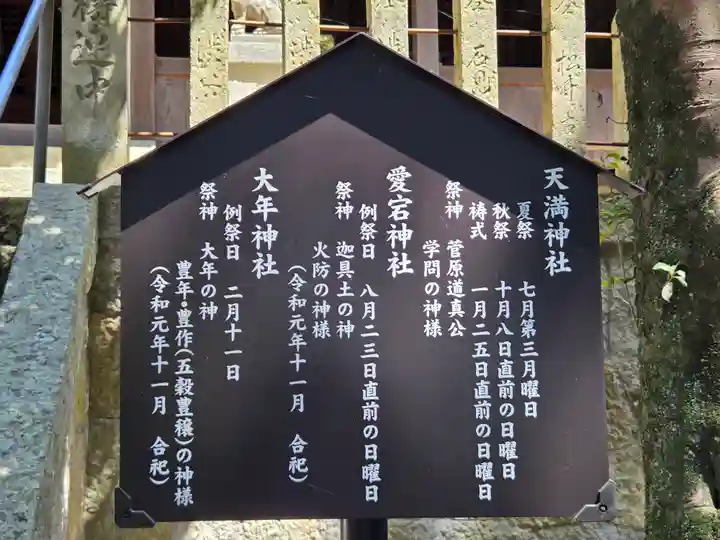 天満神社
夏祭 七月第三月曜日
秋祭 十月八日直前の日曜日
祷式 一月二五日直前の日曜日
祭神 菅原道真公
学問の神様
愛宕神社
例祭日 八月二三日直前の日曜日
祭神 迦具土の神
火防の神様
（令和元年十一月 合祀）
大年神社
例祭日 二月十一日
祭神 大年の神
豊年・豊作（五穀豊穣）の神様
（令和元年十一月 合祀）